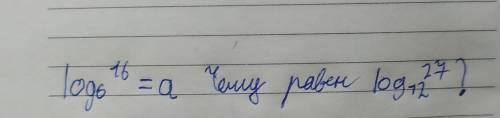 log₆ 16 = a Чему равен log₁₂ 27?